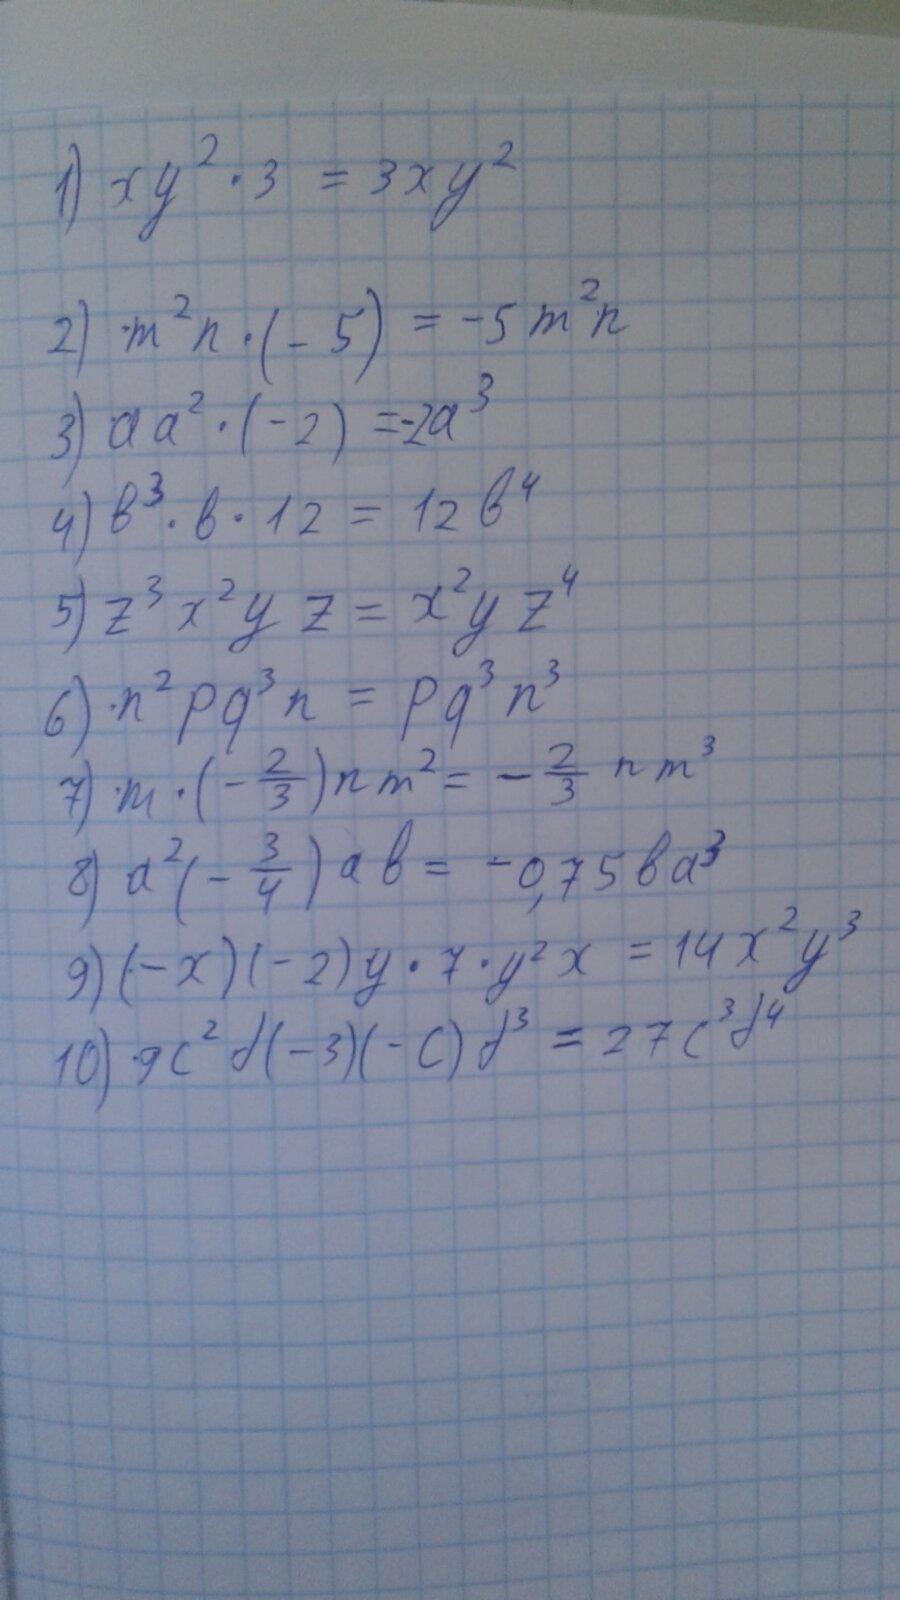 1) xy² · 3 = 3xy²
2) m²n · (-5) = -5m²n
3) aa² · (-2) = -2a³
4) в³ · в · 12 = 12в⁴
5) z³x²y z = x²y z⁴
6) n²pq³n = pq³n³
7) m · (-2/3)nm² = -2/3 nm³
8) a²(-3/4)ав = -0,75ва³
9) (-x)(-2)y · 7 · y²x = 14x²y³
10) 9c²d(-3)(-c)d³ = 27c³d⁴